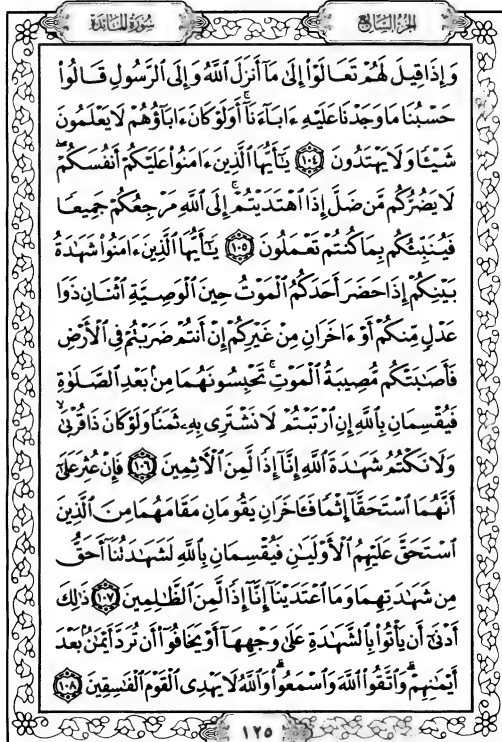 سُورَةُ المَائدة
الجزء السابع
وَإِذَا قِيلَ لَهُمْ تَعَالَوْا۟ إِلَىٰ مَآ أَنزَلَ ٱللَّهُ وَإِلَى ٱلرَّسُولِ قَالُوا۟
حَسْبُنَا مَا وَجَدْنَا عَلَيْهِ ءَابَآءَنَآ ۚ أَوَلَوْ كَانَ ءَابَآؤُهُمْ لَا يَعْلَمُونَ
شَيْـًٔا وَلَا يَهْتَدُونَ ١٠٤ يَـٰٓأَيُّهَا ٱلَّذِينَ ءَامَنُوا۟ عَلَيْكُمْ أَنفُسَكُمْ ۖ
لَا يَضُرُّكُم مَّن ضَلَّ إِذَا ٱهْتَدَيْتُمْ ۚ إِلَى ٱللَّهِ مَرْجِعُكُمْ جَمِيعًا
فَيُنَبِّئُكُم بِمَا كُنتُمْ تَعْمَلُونَ ١٠٥ يَـٰٓأَيُّهَا ٱلَّذِينَ ءَامَنُوا۟ شَهَـٰدَةُ
بَيْنِكُمْ إِذَا حَضَرَ أَحَدَكُمُ ٱلْمَوْتُ حِينَ ٱلْوَصِيَّةِ ٱثْنَانِ ذَوَا
عَدْلٍ مِّنكُمْ أَوْ ءَاخَرَانِ مِنْ غَيْرِكُمْ إِنْ أَنتُمْ ضَرَبْتُمْ فِى ٱلْأَرْضِ
فَأَصَـٰبَتْكُم مُّصِيبَةُ ٱلْمَوْتِ ۚ تَحْبِسُونَهُمَا مِنۢ بَعْدِ ٱلصَّلَوٰةِ
فَيُقْسِمَانِ بِٱللَّهِ إِنِ ٱرْتَبْتُمْ لَا نَشْتَرِى بِهِۦ ثَمَنًا وَلَوْ كَانَ ذَا قُرْبَىٰ ۙ
وَلَا نَكْتُمُ شَهَـٰدَةَ ٱللَّهِ إِنَّآ إِذًا لَّمِنَ ٱلْـَٔاثِمِينَ ١٠٦ فَإِنْ عُثِرَ عَلَىٰٓ
أَنَّهُمَا ٱسْتَحَقَّآ إِثْمًا فَـَٔاخَرَانِ يَقُومَانِ مَقَامَهُمَا مِنَ ٱلَّذِينَ
ٱسْتَحَقَّ عَلَيْهِمُ ٱلْأَوْلَيَـٰنِ فَيُقْسِمَانِ بِٱللَّهِ لَشَهَـٰدَتُنَآ أَحَقُّ
مِن شَهَـٰدَتِهِمَا وَمَا ٱعْتَدَيْنَآ إِنَّآ إِذًا لَّمِنَ ٱلظَّـٰلِمِينَ ١٠٧ ذَٰلِكَ
أَدْنَىٰٓ أَن يَأْتُوا۟ بِٱلشَّهَـٰدَةِ عَلَىٰ وَجْهِهَآ أَوْ يَخَافُوٓا۟ أَن تُرَدَّ أَيْمَـٰنٌۢ بَعْدَ
أَيْمَـٰنِهِمْ ۗ وَٱتَّقُوا۟ ٱللَّهَ وَٱسْمَعُوا۟ ۗ وَٱللَّهُ لَا يَهْدِى ٱلْقَوْمَ ٱلْفَـٰسِقِينَ ١٠٨
١٢٥